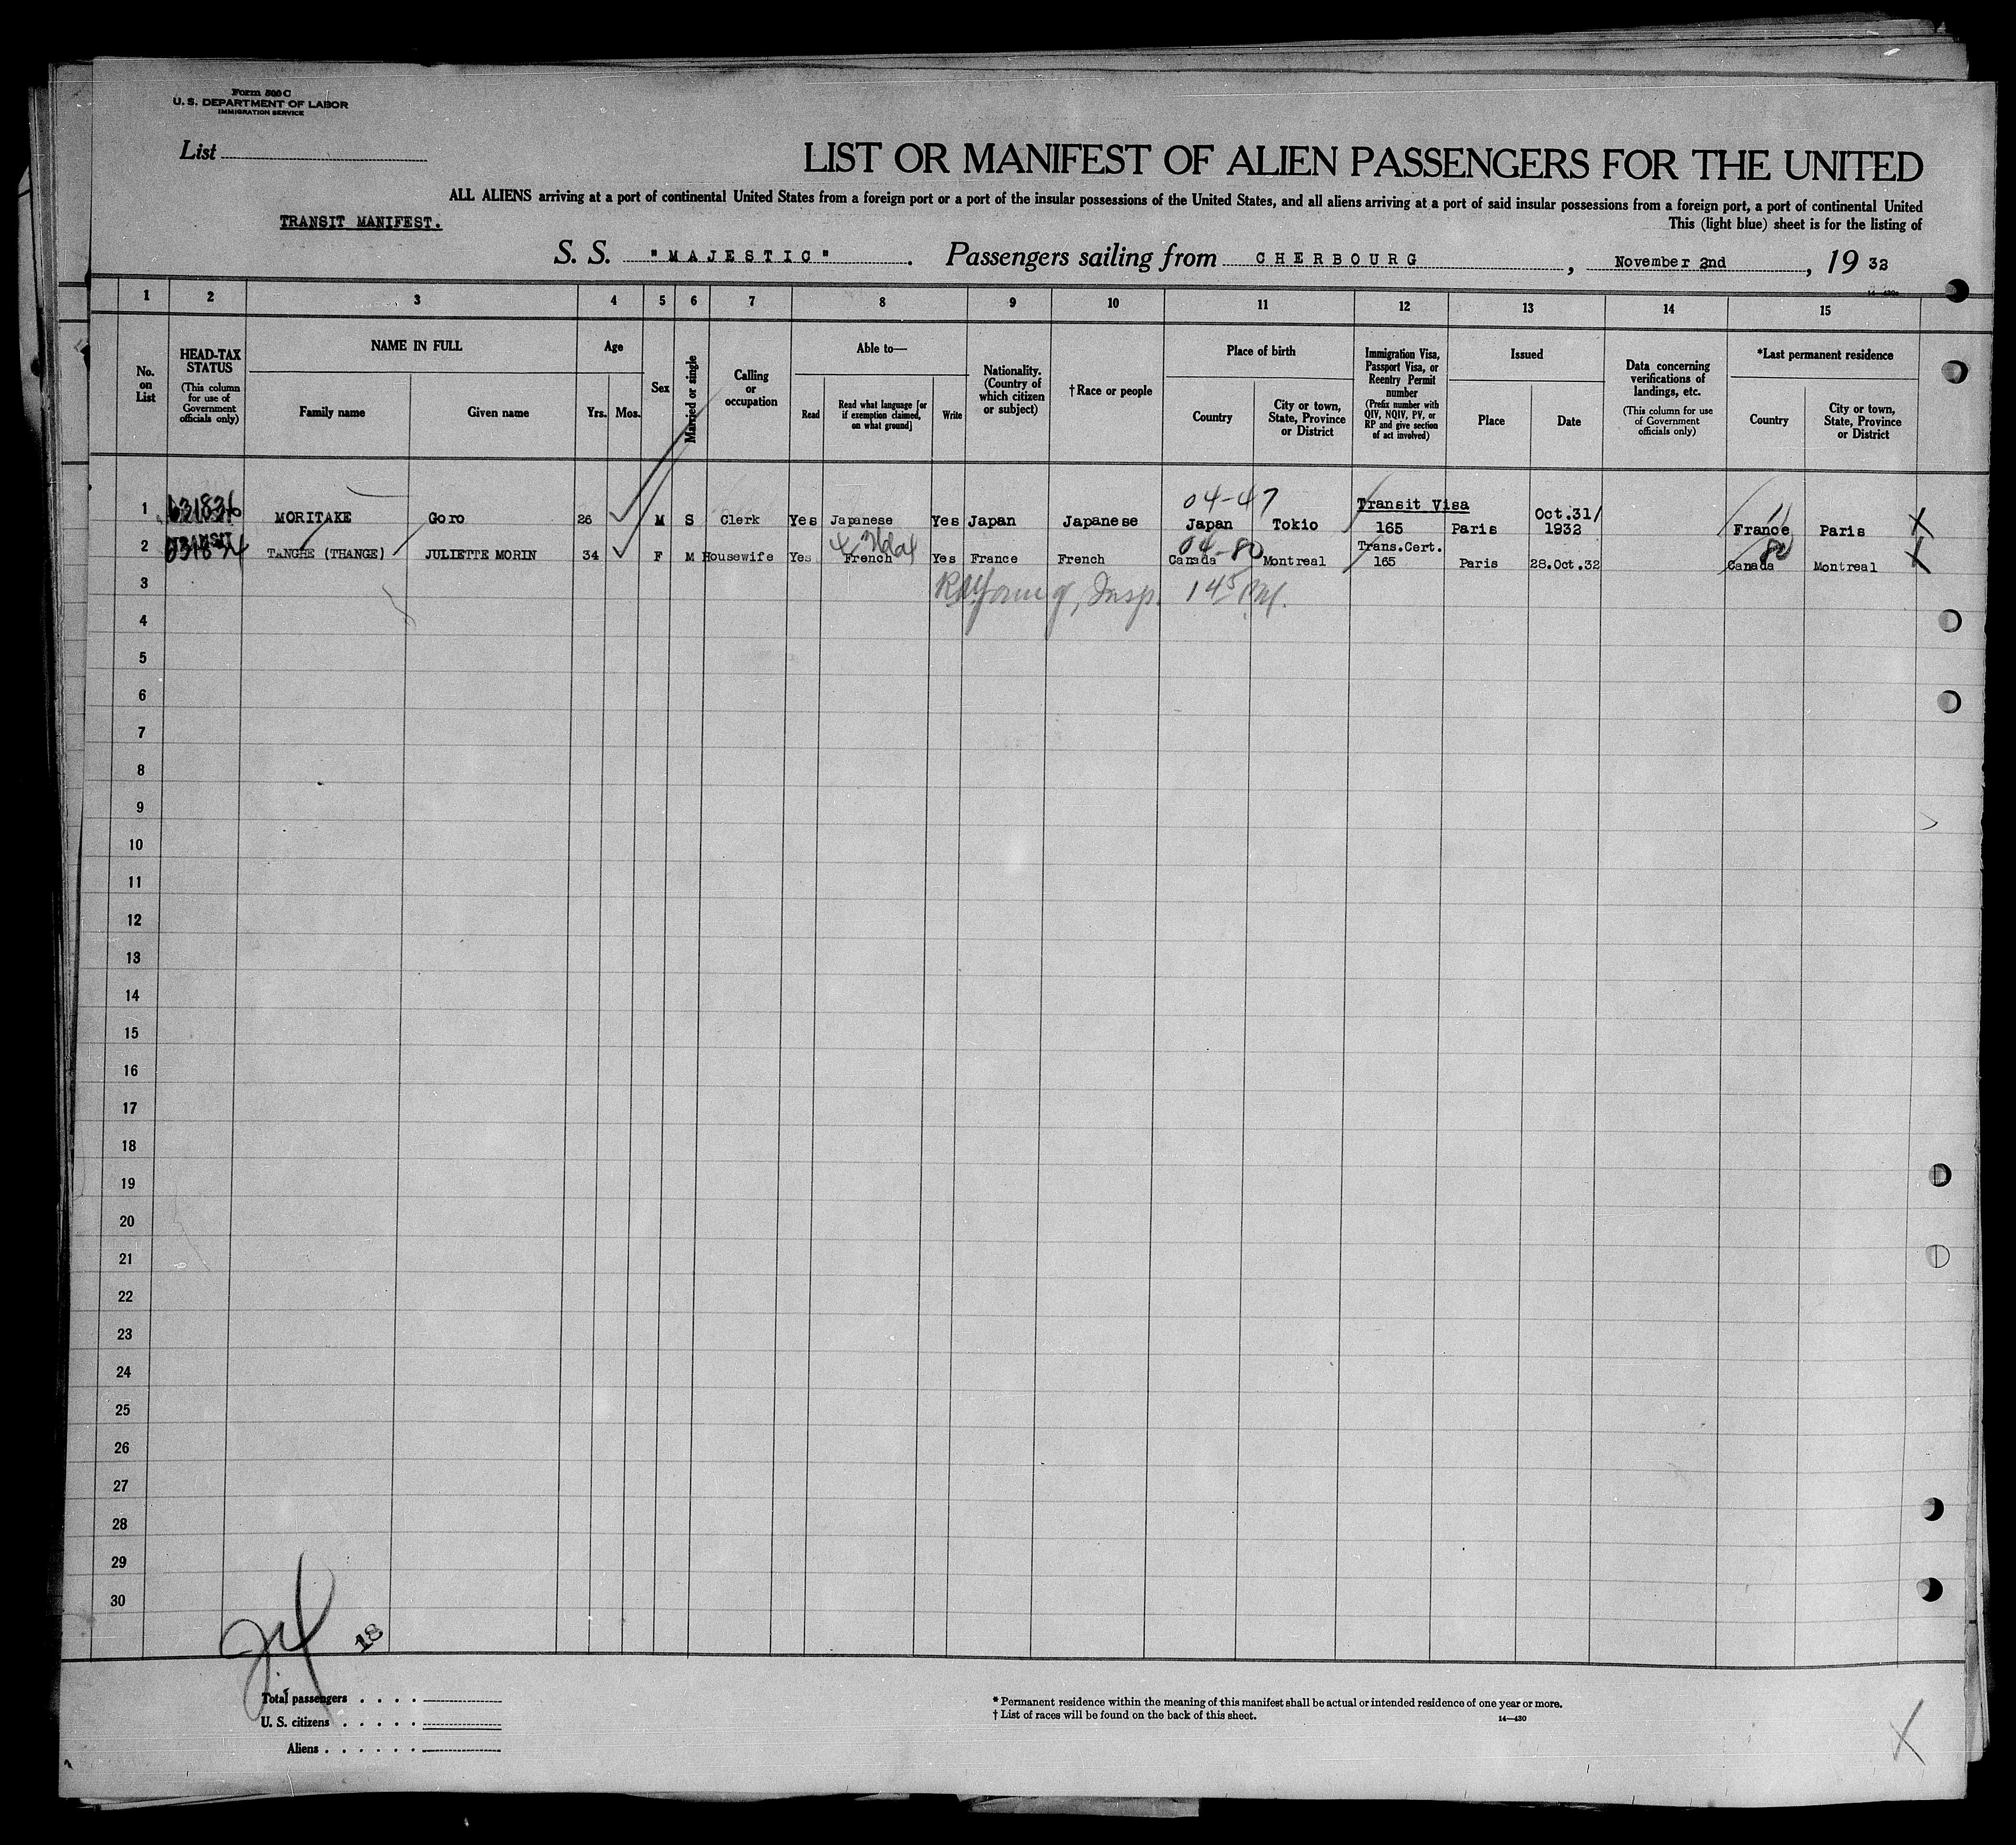 Form 500 C
U. S. DEPARTMENT OF LABOR
IMMIGRATION SERVICE
List
LIST OR MANIFEST OF ALIEN PASSENGERS FOR THE UNITED
ALL ALIENS arriving at a port of continental United States from a foreign port or a port of the insular possessions of the United States, and all aliens arriving at a port of said insular possessions from a foreign port, a port of continental United
TRANSIT MANIFEST.
This (light blue) sheet is for the listing of
S. S. "MAJESTIC" . Passengers sailing from CHERBOURG , November 2nd , 19 32
14—430a
1 2 3 4 5 6 7 8 9 10 11 12 13 14 15
No. on List
HEAD-TAX STATUS (This column for use of Government officials only)
NAME IN FULL
Family name
Given name
Age
Yrs. Mos.
Sex
Married or single
Calling or occupation
Able to—
Read
Read what language [or if exemption claimed, on what ground]
Write
Nationality. (Country of which citizen or subject)
†Race or people
Place of birth
Country
City or town, State, Province or District
Immigration Visa, Passport Visa, or Reentry Permit number (Prefix number with QIV, NQIV, PV, or RP and give section of act involved)
Issued
Place
Date
Data concerning verifications of landings, etc. (This column for use of Government officials only)
*Last permanent residence
Country
City or town, State, Province or District
04-47 Transit Visa
1 631836 MORITAKE Goro 26 M S Clerk Yes Japanese Yes Japan Japanese Japan Tokio 165 Paris Oct.31/1932 France Paris X
TRANSIT 04-80 Trans.Cert. 80
2 TANGHE (THANGE) JULIETTE MORIN 34 F M Housewife Yes French Yes France French Canada Montreal 165 Paris 28.Oct.32 Canada Montreal X
3 Insp. 145 PM.
4
5
6
7
8
9
10
11
12
13
14
15
16
17
18
19
20
21
22
23
24
25
26
27
28
29
30
18
Total passengers
U. S. citizens
Aliens
* Permanent residence within the meaning of this manifest shall be actual or intended residence of one year or more.
† List of races will be found on the back of this sheet.
14—430
X